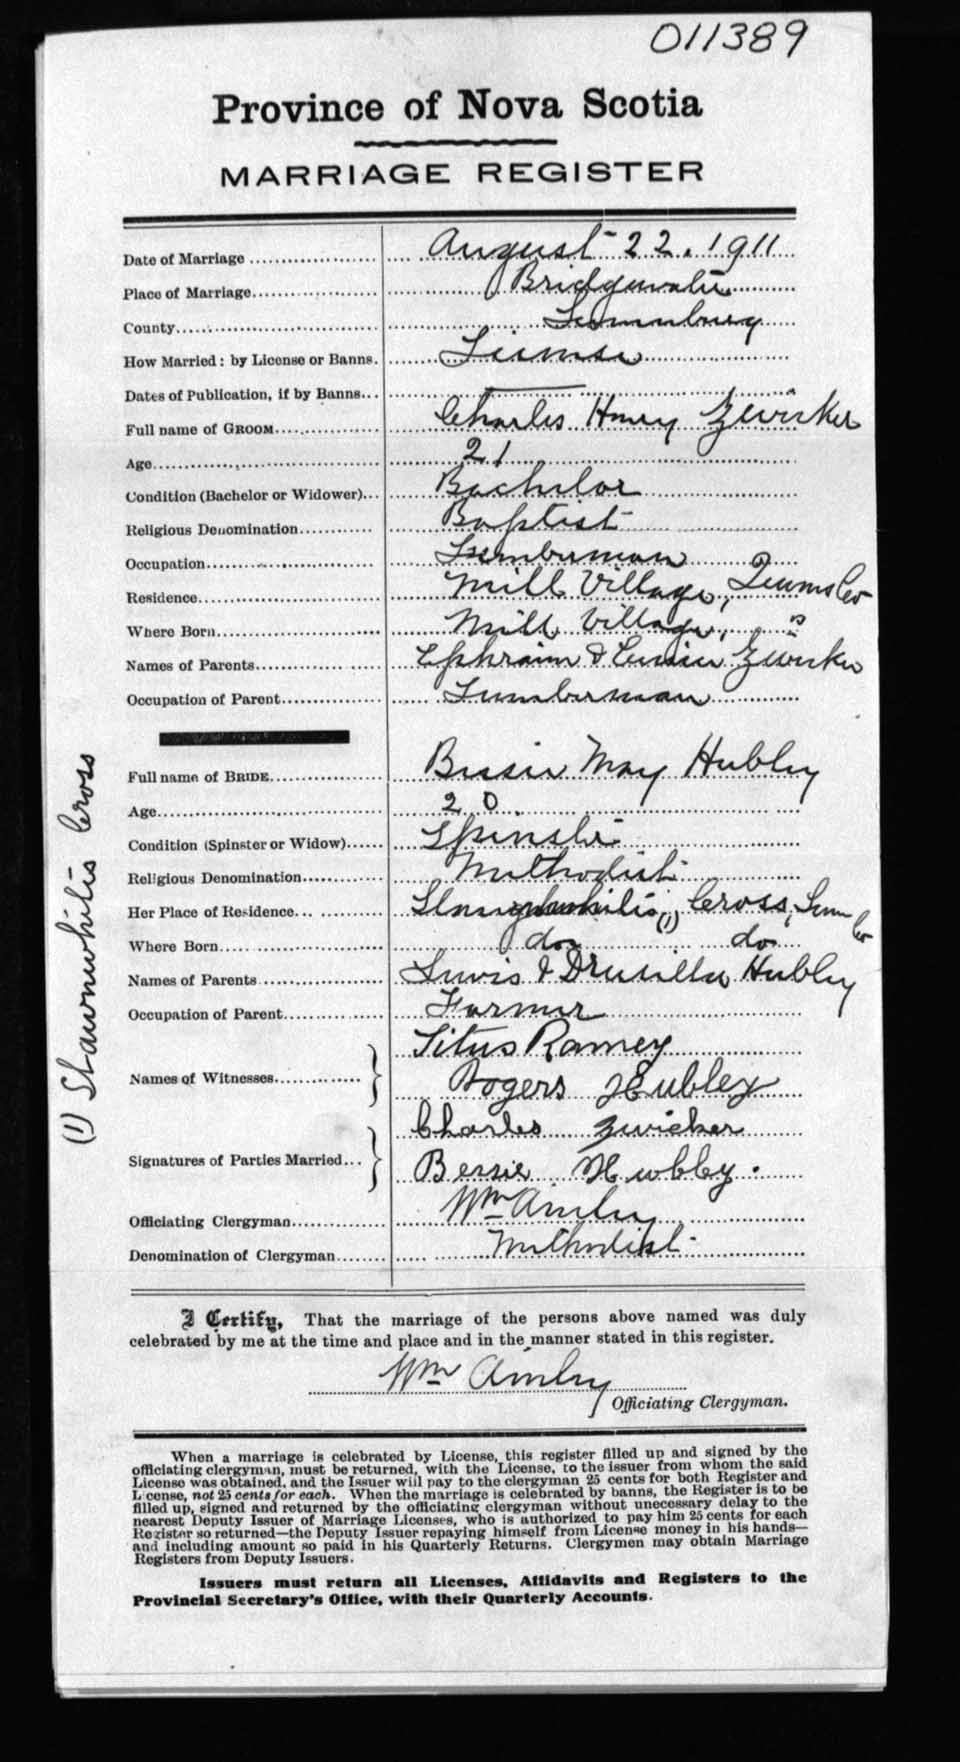 011389
Province of Nova Scotia
MARRIAGE REGISTER
Date of Marriage August 22. 1911
Place of Marriage Bridgewater
County Lunenburg
How Married: by License or Banns. License
Dates of Publication, if by Banns —
Full name of GROOM Charles Henry Zwicker
Age 21
Condition (Bachelor or Widower) Bachelor
Religious Denomination Baptist
Occupation Lumberman
Residence Mill Village, Queens Co
Where Born Mill Village, "
Names of Parents Ephraim & Zwicker
Occupation of Parent Lumberman
Full name of BRIDE Bessie May Hubley
Age 20
Condition (Spinster or Widow) Spinster
Religious Denomination Methodist
Her Place of Residence (1) Cross, Lun Co
Where Born do do
Names of Parents Lewis & Drusilla Hubley
Occupation of Parent Farmer
Names of Witnesses Titus Ramey
Rogers Hubley
Signatures of Parties Married Charles Zwicker
Bessie Hubley.
Officiating Clergyman Wm
Denomination of Clergyman Methodist
(1) Cross
I Certify, That the marriage of the persons above named was duly
celebrated by me at the time and place and in the manner stated in this register.
Wm
Officiating Clergyman.
When a marriage is celebrated by License, this register filled up and signed by the
officiating clergyman, must be returned, with the License, to the issuer from whom the said
License was obtained, and the Issuer will pay to the clergyman 25 cents for both Register and
License, not 25 cents for each. When the marriage is celebrated by banns, the Register is to be
filled up, signed and returned by the officiating clergyman without unecessary delay to the
nearest Deputy Issuer of Marriage Licenses, who is authorized to pay him 25 cents for each
Register so returned—the Deputy Issuer repaying himself from License money in his hands—
and including amount so paid in his Quarterly Returns. Clergymen may obtain Marriage
Registers from Deputy Issuers.
Issuers must return all Licenses, Affidavits and Registers to the
Provincial Secretary's Office, with their Quarterly Accounts.